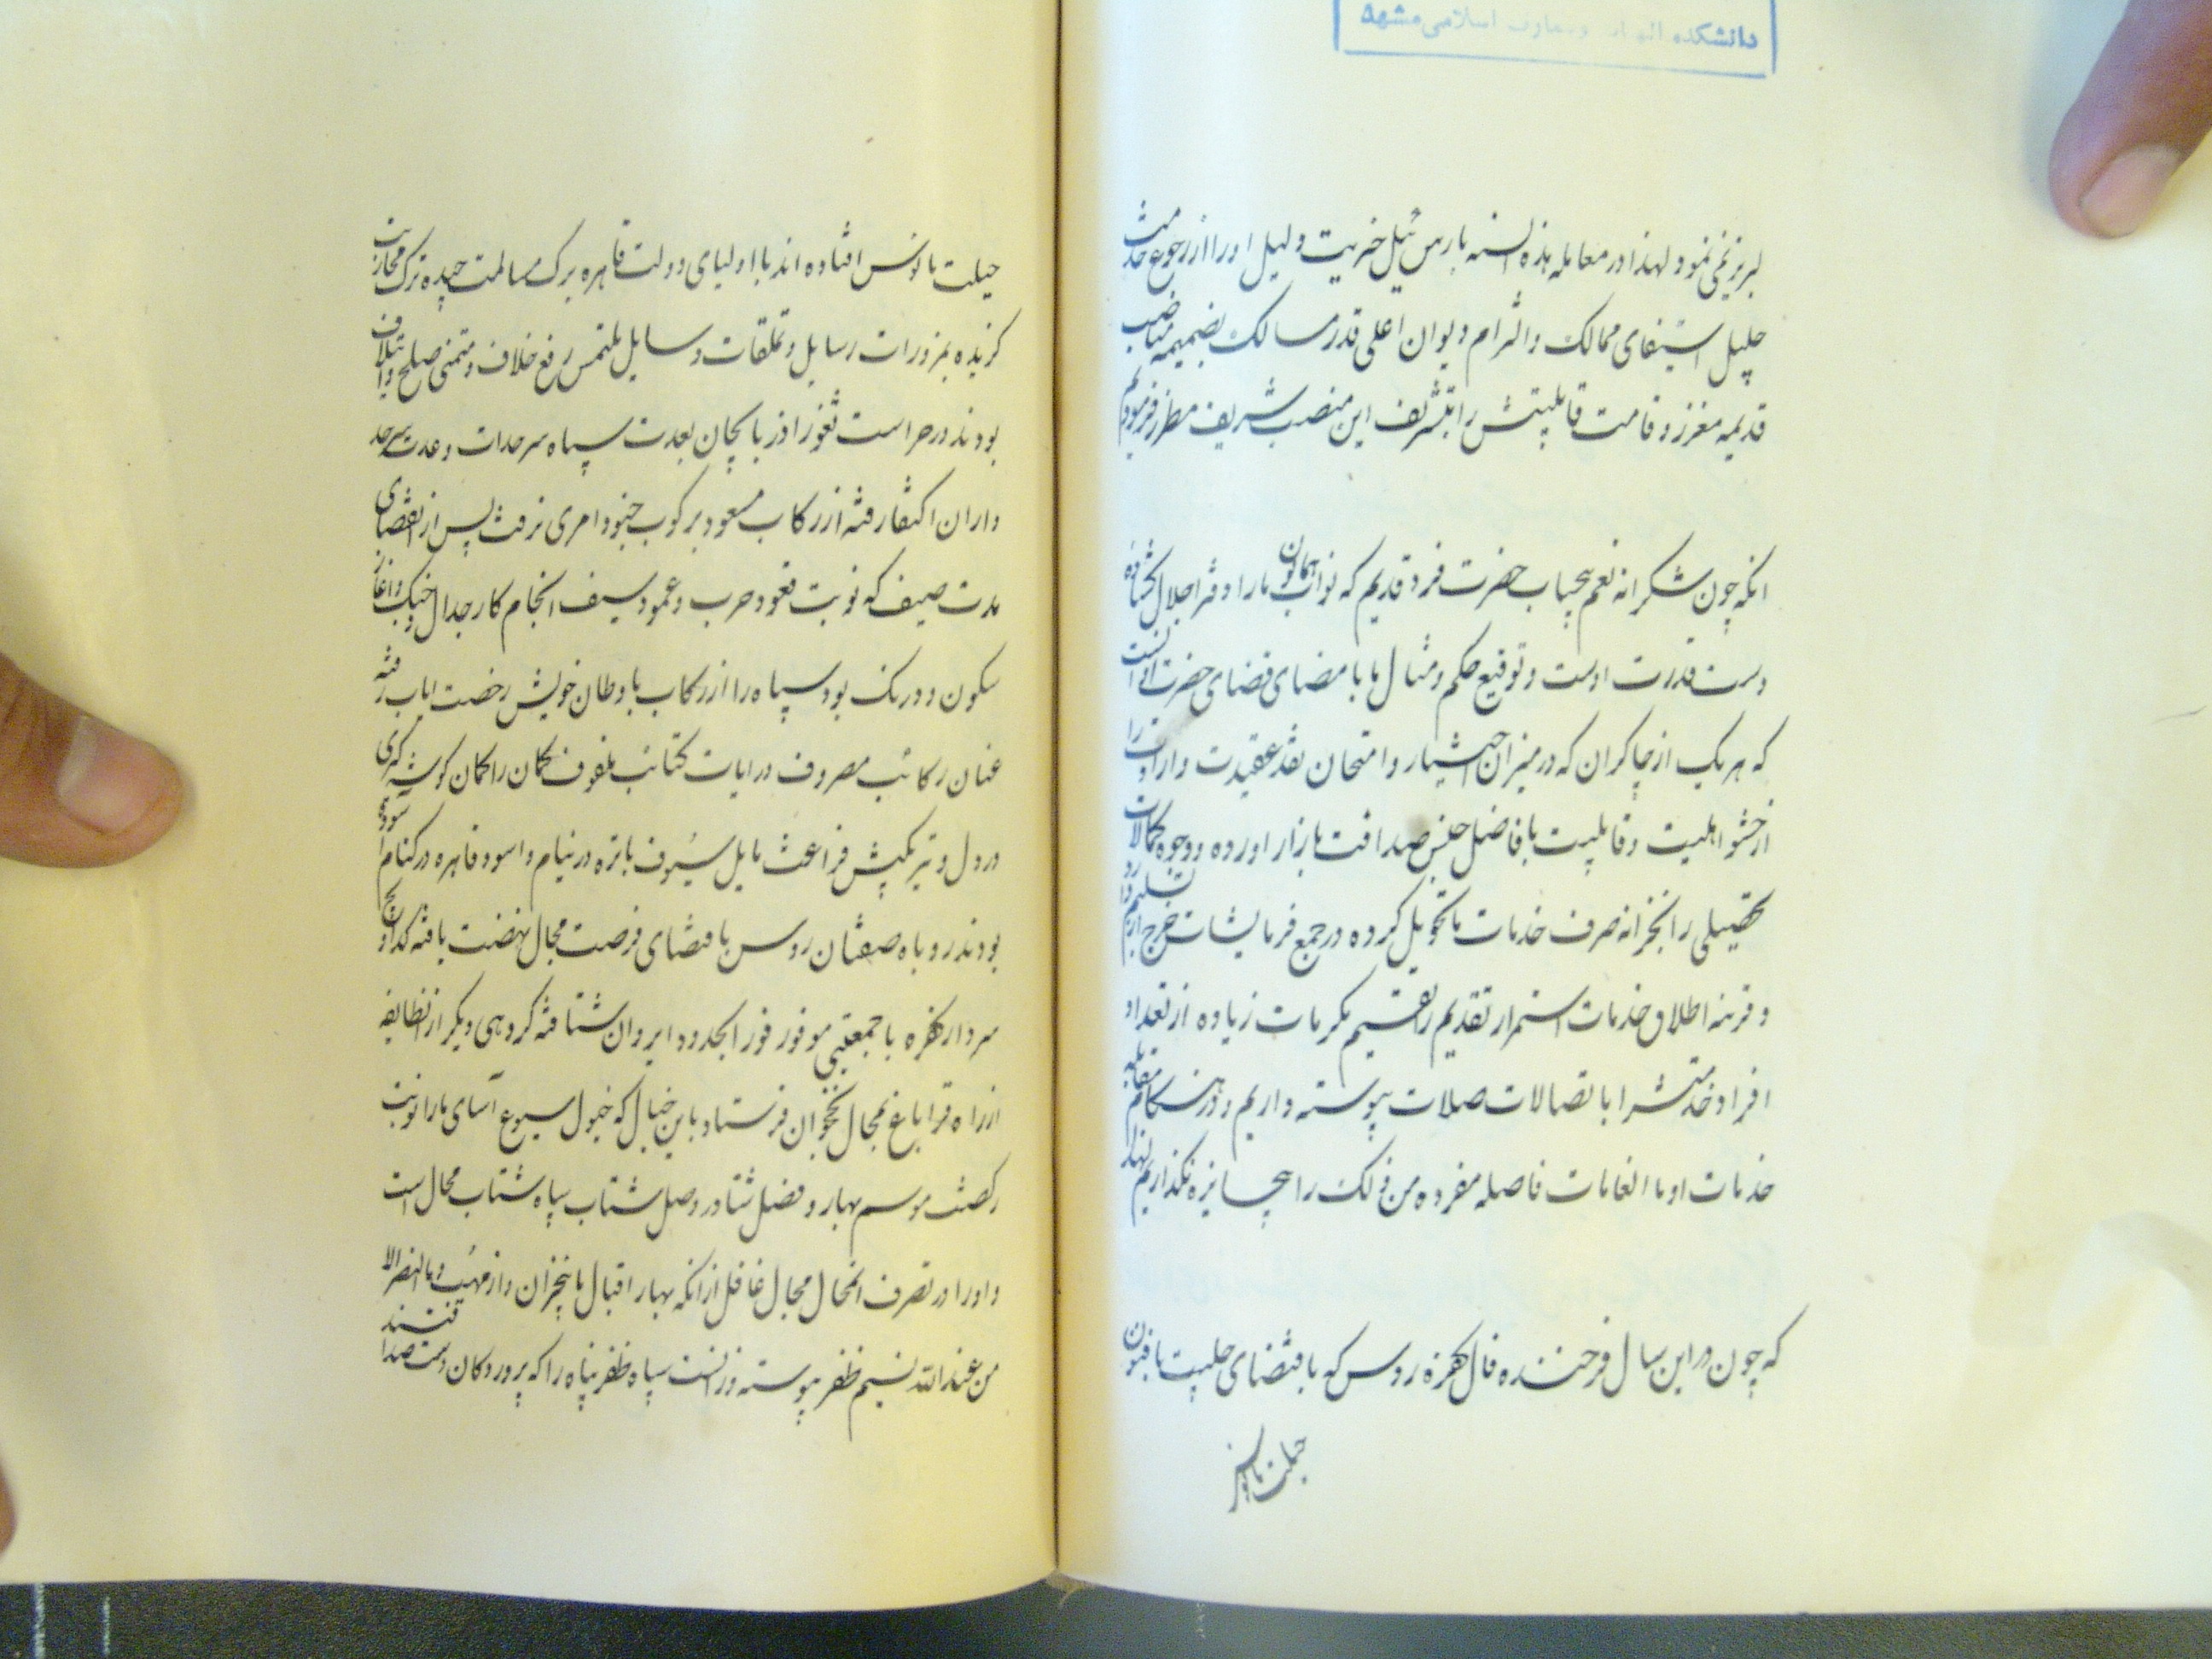 دانشکده الهیات و معارف اسلامی مشهد
لبریز نمی نمود لهذا در معامله هذه السنه بارس ئیل خیریت دلیل او را از رجوع خدمت
جلیل استیفای ممالک و التزام دیوان اعلی قدر مسالک بضمیمه مناصب
قدیمه معزز و قامت قابلیتش را بتشریف این منصب شریف مطرز فرمودیم
انکه چون شکرانه نعم بیحساب حضرت فرد قدیم که نواب همایون ما را دفتر اجلال کشاده
دست قدرت اوست و توقیع حکم و مثال ما بامضای قضای حضرت او انست
که هر یک از چاکران که در میزان اختیار و امتحان نقد عقیدت و ارادت را
از حشو اهلیت و قابلیت با فاضل جنس صداقت ببازار اورده و وجوه کمالات
تحصیلی را بخزانه صرف خدمات ما تحویل کرده در جمع فرمایشات خرج
و قرینه اطلاق خدمات استمرار تقدیم تقسیم مکرمات زیاده از تعداد
افراد خدمتش را با تصالات صلات پیوسته داریم و در هنکام مقابله
خدمات او با انعامات فاصله مفرده من ذلک را بیجایزه نکذاریم لهذا
که چون در این سال فرخنده فال کفره روس که باقتضای جبلیت با فنون
حیلت مانوس
حیلت مانوس افتاده اند با اولیای دولت قاهره برک مسالمت چیده ترک محاربت
کزیده بمزورات رسایل و تملقات وسایل ملتمس رفع خلاف و متمنی صلح و ایتلاف
بودند در حراست ثغور اذربایجان بعدت سپاه سرحدات و عدت سرحد
داران اکتفا رفته از رکاب مسعود بر کوب جنود امری نرفت پس از انقضای
مدت صیف که نوبت قعود حرب و عمود سیف انجام کار جدال و جنک و اغاز
سکون و درنک بود سپاه را از رکاب باوطان خویش رخصت ایاب رفته
عنان رکائب مصروف و رایات کتائب ملفوف کمان را کمان کوشه کیری
در دل و تیر بکیش فراغت مایل سیوف باتره در نیام و اسود قاهره در کنام اسوده
بودند روباه صفتان روس باقتضای فرصت مجال نهضت یافته
سردار کفره با جمعیتی موفور فورا بحدود ایروان شتافته کروهی دیکر از انطایفه
از راه قراباغ بمحال نخجوان فرستاد باین خیال که خیول سیوع آسای ما را نوبت
رکضت موسم بهار و فصل شتا در وصل شتاب سپاه شتاب محال است
و او را در تصرف انمحال مجال غافل از انکه بهار اقبال ما بیخزان و از مهب و ما النصر الا
من عند الله نسیم ظفر پیوسته وزانست سپاه ظفر پناه را که پروردکان دست